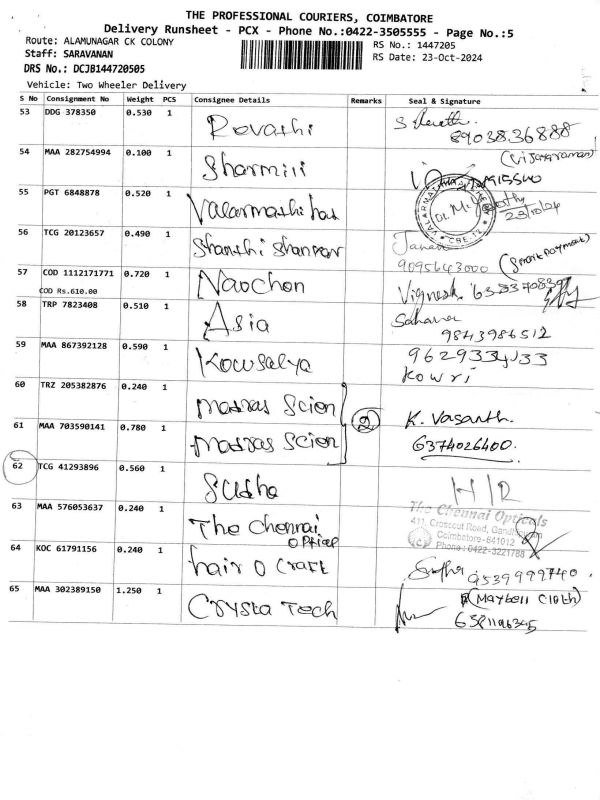 THE PROFESSIONAL COURIERS, COIMBATORE
Delivery Runsheet - PCX - Phone No.:0422-3505555 - Page No.:5
Route: ALAMUNAGAR CK COLONY
RS No.: 1447205
Staff: SARAVANAN
RS Date: 23-Oct-2024
DRS No.: DCJB144720505
Vehicle: Two Wheeler Delivery
S No Consignment No Weight PCS Consignee Details Remarks Seal & Signature
53 DDG 378350 0.530 1 Revathi
8903836888
54 MAA 282754994 0.100 1 Sharmili
(Vijayaraman)
55 PGT 6848878 0.520 1 Valarmathi
Dr. M.
23/10/24
CBE-12
56 TCG 20123657 0.490 1 Shanthi Shankar
9095643000
57 COD 1112171771 0.720 1 Naochon
COD Rs.610.00
Vignesh
58 TRP 7823408 0.510 1 Asia
Sahana
9843986512
59 MAA 867392128 0.590 1 Kowsalya
Kowri
60 TRZ 205382876 0.240 1 Madras Scien
2
K. Vasanth.
61 MAA 703590141 0.780 1 Madras Scien
6374026400.
62 TCG 41293896 0.560 1 Sudha
H/R
63 MAA 576053637 0.240 1 The Chennai
Optical
The Chennai Opticals
411, Crosscut Road,
Coimbatore-641012
Phone : 0422-3221788
64 KOC 61791156 0.240 1 hair O Craft
Sudha 9539999740.
65 MAA 302389150 1.250 1 Crysta Tech
(Maybell Cloth)